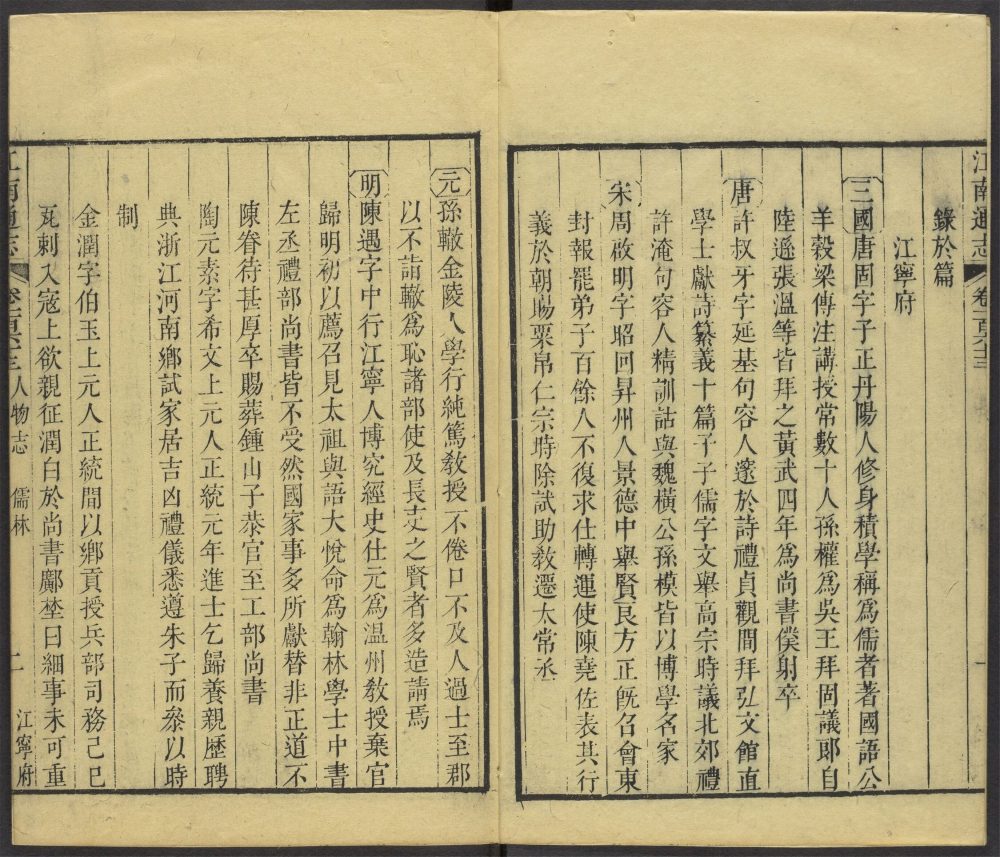 江南通志 卷一百六十三
錄於篇
江寧府
三國唐固字子正丹陽人修身積學稱爲儒者著國語公
羊穀梁傳注講授常數十人孫權爲吳王拜固議郎自
陸遜張溫等皆拜之黃武四年爲尚書僕射卒
唐許叔牙字延基句容人邃於詩禮貞觀間拜弘文館直
學士獻詩纂義十篇子子儒字文舉高宗時議北郊禮
許淹句容人精訓詁與魏模公孫模皆以博學名家
宋周啟明字昭回昇州人景德中舉賢良方正既召會東
封報罷弟子百餘人不復求仕轉運使陳堯佐表其行
義於朝賜粟帛仁宗時除試助教遷太常丞
一
元孫轍金陵人學行純篤教授不倦口不及人過士至郡
以不詣轍爲恥諸部使及長吏之賢者多造請焉
明陳遇字中行江寧人博究經史仕元爲溫州教授棄官
歸明初以薦召見太祖與語大悅命爲翰林學士中書
左丞禮部尚書皆不受然國家事多所獻替非正道不
陳眷待甚厚卒賜葬鍾山子恭官至工部尚書
陶元素字希文上元人正統元年進士乞歸養親歷聘
典浙江河南鄉試家居吉凶禮儀悉遵朱子而參以時
制
金潤字伯玉上元人正統間以鄉貢授兵部司務己巳
瓦剌入寇上欲親征潤白於尚書鄺埜曰細事未可重
江南通志 人物志 儒林 二 江寧府